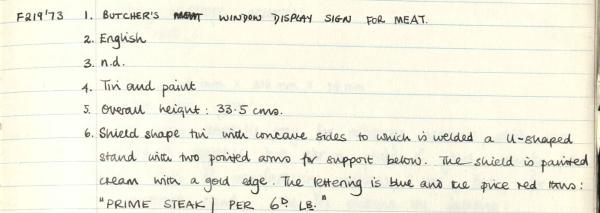 F219'73 1. BUTCHER'S MEAT WINDOW DISPLAY SIGN FOR MEAT.
2. English
3. n.d.
4. Tin and paint
5. Overall height: 33.5 cms.
6. Shield shape tin with concave sides to which is welded a U-shaped
stand with two pointed arms for support below. The shield is painted
cream with a gold edge. The lettering is blue and the price red thus:
"PRIME STEAK | PER 6D. LB."